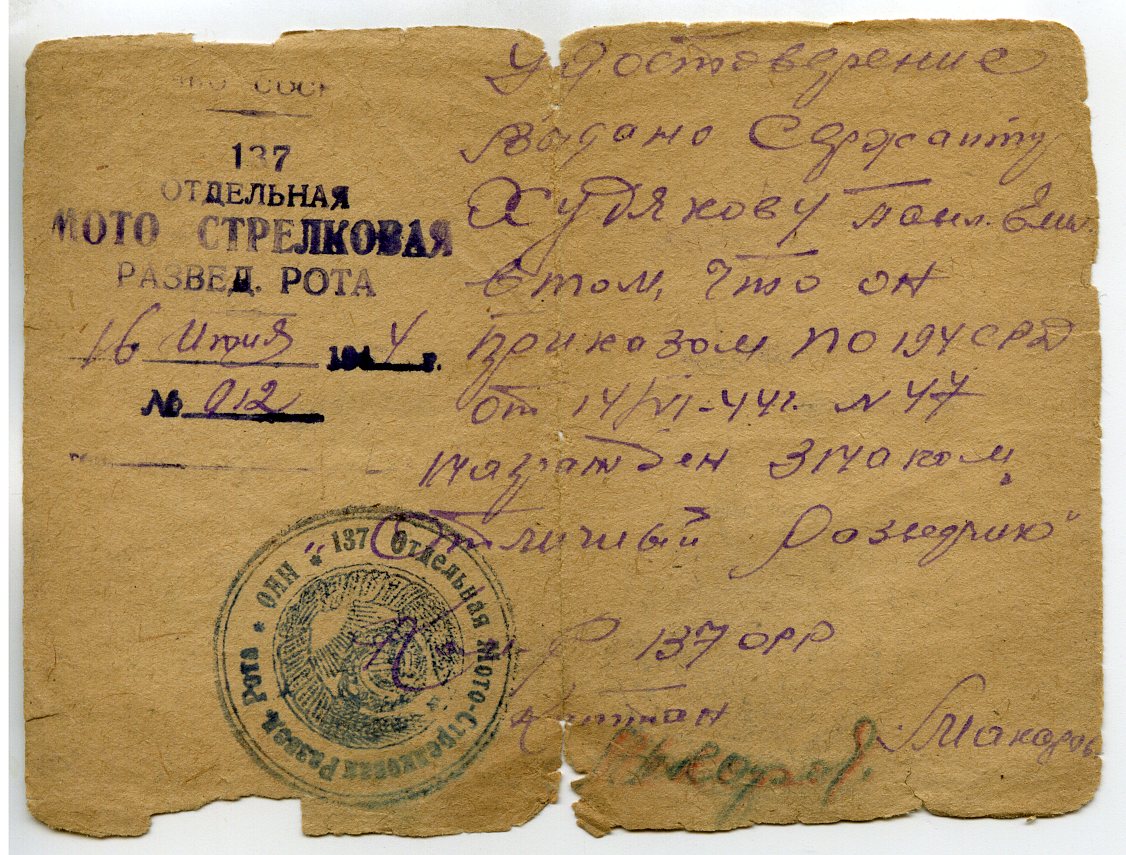 СССР
137
ОТДЕЛЬНАЯ
МОТО СТРЕЛКОВАЯ
РАЗВЕД. РОТА
16 Июня 1944 г.
№ 012
Удостоверение
Выдано Сержанту
Худякову
в том, что он
приказом по 194 СРД
от 14/VI-44г. N 47
награжден знаком
"Отличный Розведчик"
Ком-р 137 ОРР
Капитан Макаров
137 Отдельная Мото-Стрелковая Развед. Рота * ОНН *